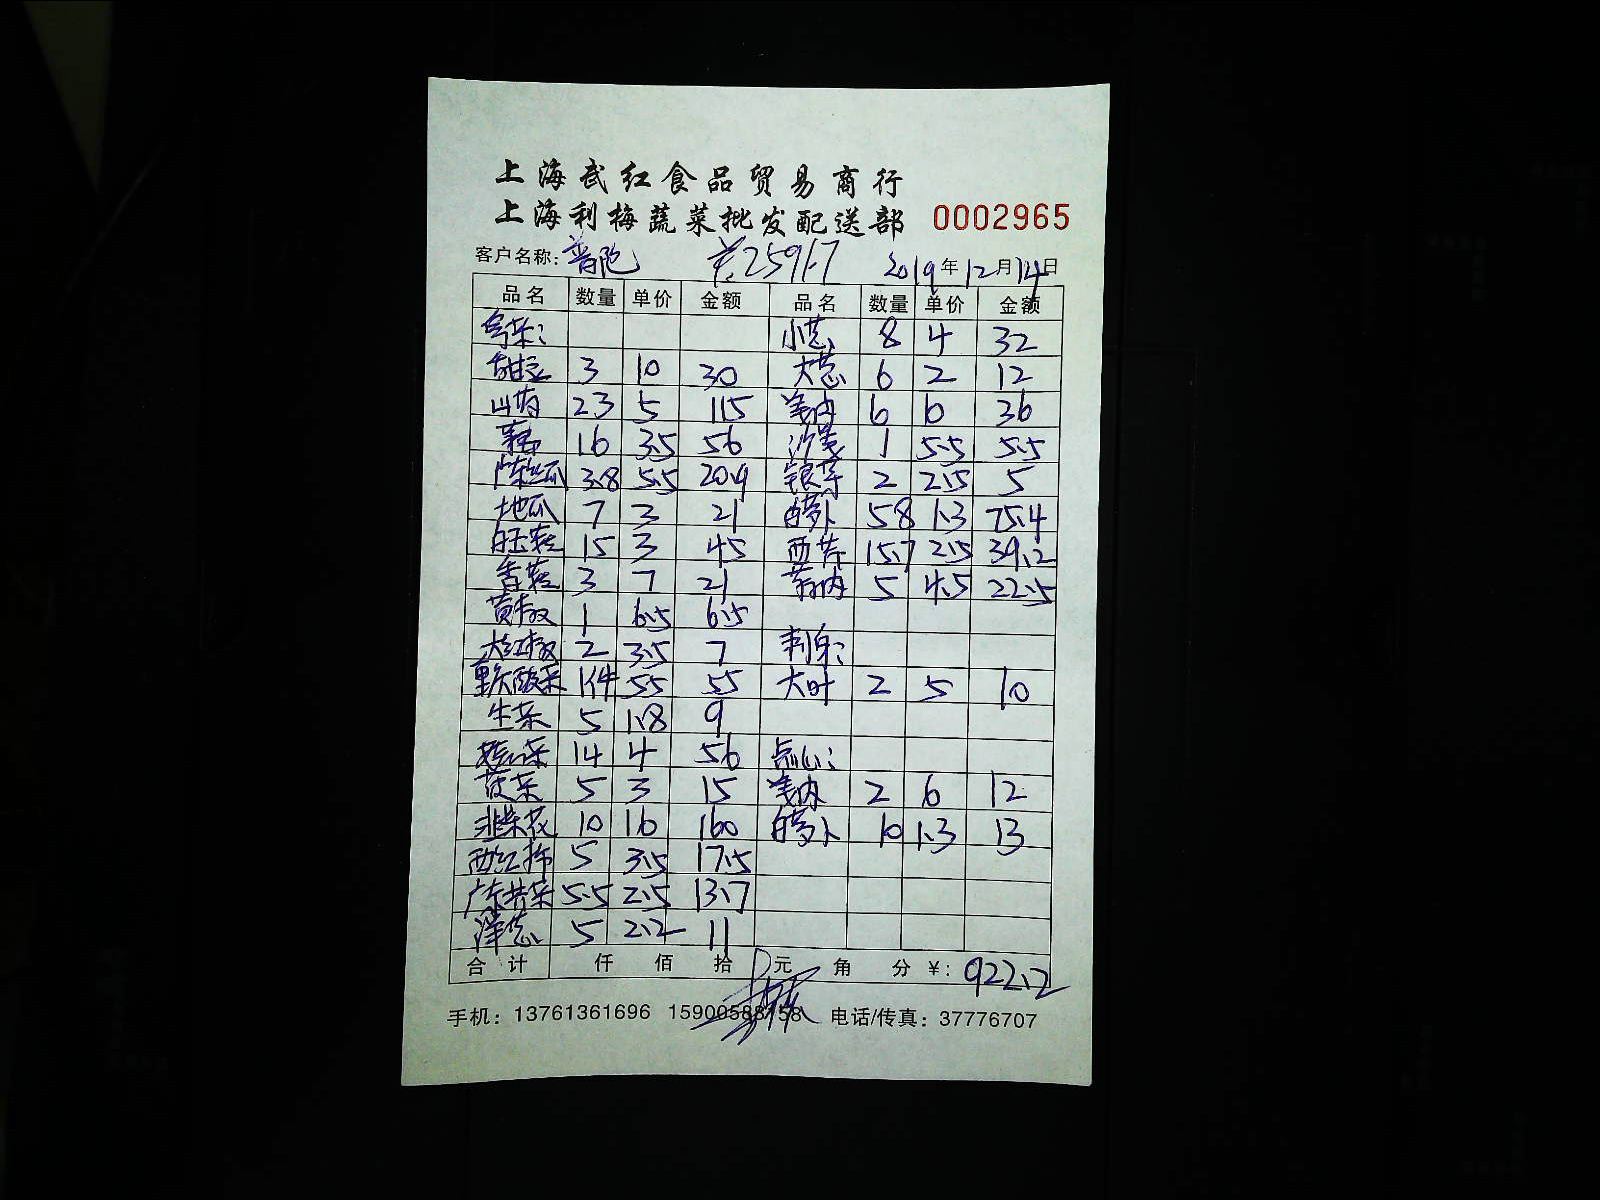 上海武红食品贸易商行
上海利梅蔬菜批发配送部 0002965
客户名称: 普陀 ¥:2591.7 2019年12月14日
品名 数量 单价 金额 品名 数量 单价 金额
小葱 8 4 32
甜豆 3 10 30 大葱 6 2 12
山药 23 5 115 姜肉 6 6 36
16 3.5 56 沙姜 1 5.5 5.5
3.8 5.5 20.9 银芽 2 2.5 5
地瓜 7 3 21 白萝卜 58 1.3 75.4
白玉菇 15 3 45 西芹 15.7 2.5 39.2
香菇 3 7 21 蒜肉 5 4.5 22.5
黄椒 1 6.5 6.5
大红椒 2 3.5 7 刺身:
重庆酸菜 1件 55 55 大叶 2 5 10
生菜 5 1.8 9
14 4 56 点心:
菠菜 5 3 15 姜肉 2 6 12
韭菜花 10 16 160 白萝卜 10 1.3 13
西红柿 5 3.5 17.5
广东 5.5 2.5 13.7
洋葱 5 2.2 11
合计 仟 佰 拾 元 角 分 ¥: 922.2
手机: 13761361696 15900588158 电话/传真: 37776707